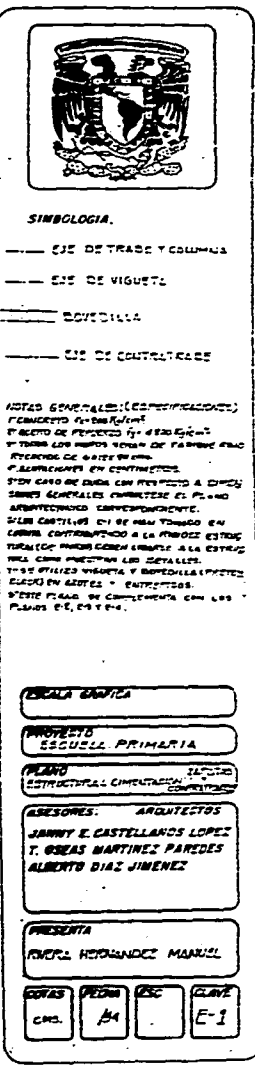 SIMBOLOGIA.
EJE DE TRABE Y COLUMNA
EJE DE VIGUETA
BOVEDILLA
EJE DE CONTRATRABE
NOTAS GENERALES: (ESPECIFICACIONES)
CONCRETO
ACERO DE REFUERZO
TODOS LOS MUROS SERAN DE TABIQUE ROJO
RECOCIDO DE
ACOTACIONES EN CENTIMETROS.
EN CASO DE DUDA CON RESPECTO A DIMEN
SIONES GENERALES CONSULTESE EL PLANO
ARQUITECTONICO CORRESPONDIENTE.
LOS CASTILLOS C-1 SE HAN TOMADO EN
CUENTA CONTRIBUYENDO A LA RIGIDEZ ESTRUC
TURAL DEBEN LIGARSE A LA ESTRUC
TURA COMO MUESTRAN LOS DETALLES.
SE UTILIZO VIGUETA Y BOVEDILLA
EN AZOTEA Y ENTREPISOS.
ESTE PLANO SE COMPLEMENTA CON LOS
PLANOS
ESCALA GRAFICA
PROYECTO
ESCUELA PRIMARIA
PLANO ZAPATAS
ESTRUCTURAL CIMENTACION
CONTRATRABES
ASESORES: ARQUITECTOS
JANNY E. CASTELLANOS LOPEZ
T. OSEAS MARTINEZ PAREDES
ALBERTO DIAZ JIMENEZ
PRESENTA
RIVERA HERNANDEZ MANUEL
COTAS FECHA ESC CLAVE
CMS. E-1